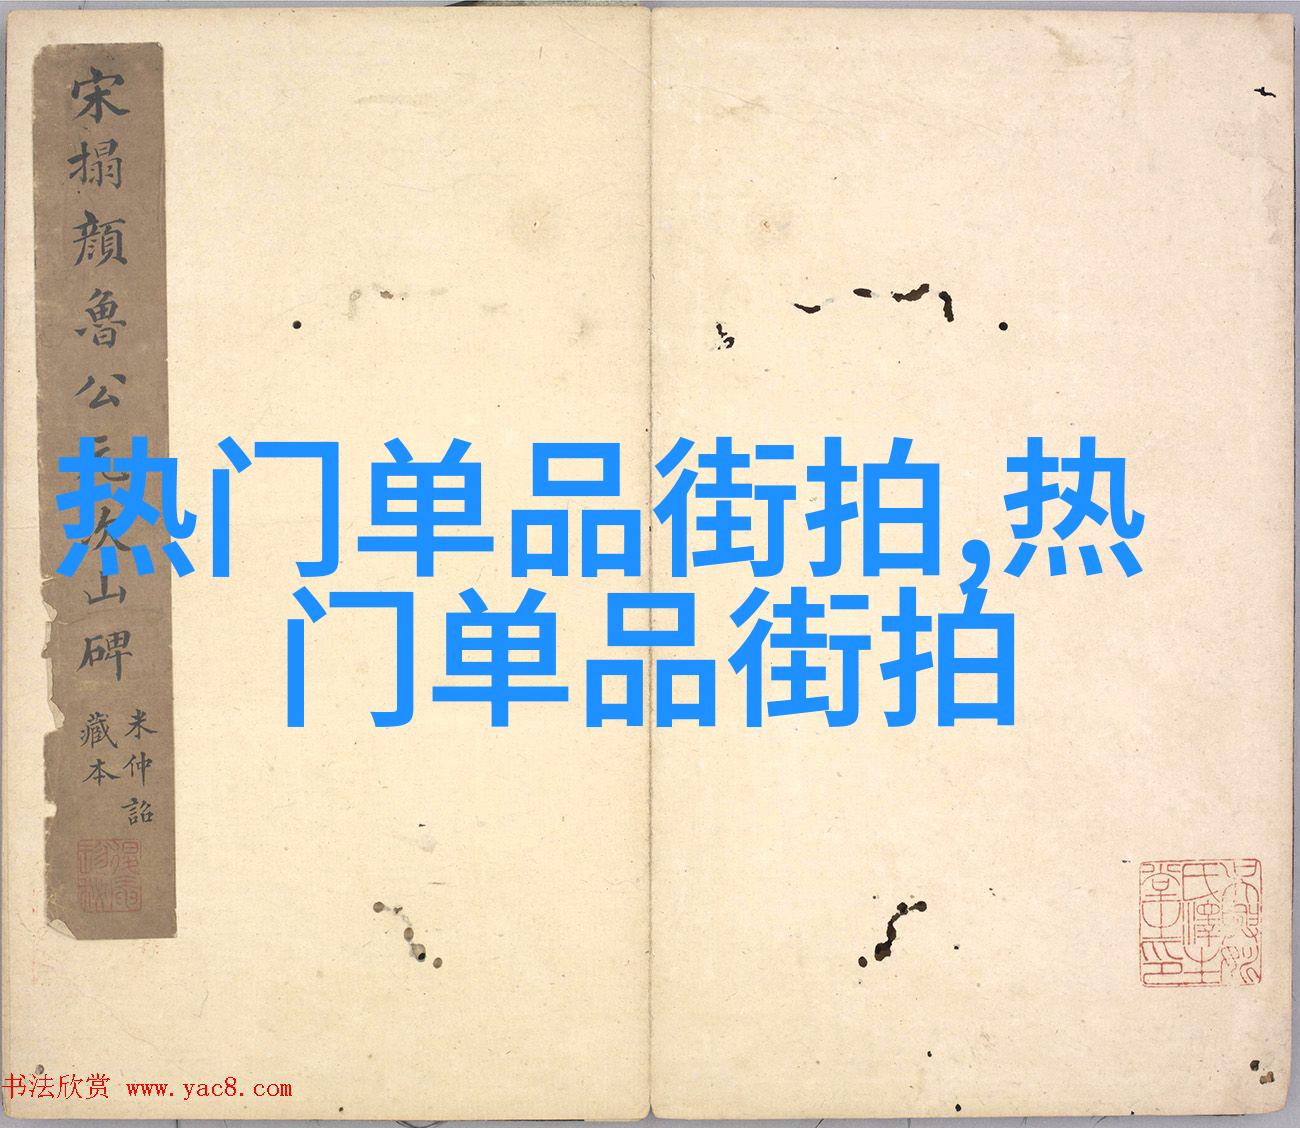 宋搨顏魯公元次山碑
米仲詔
藏本
热门单品街拍,热
门单品街拍
书法欣赏 www.yac8.com